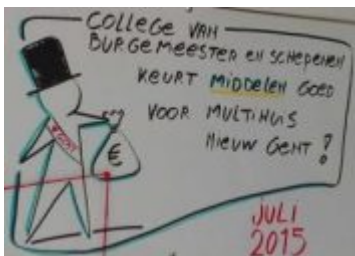 COLLEGE VAN
BURGEMEESTER EN SCHEPENEN
KEURT MIDDELEN GOED
VOOR MULTIHUIS
NIEUW GENT ?
€
JULI
2015